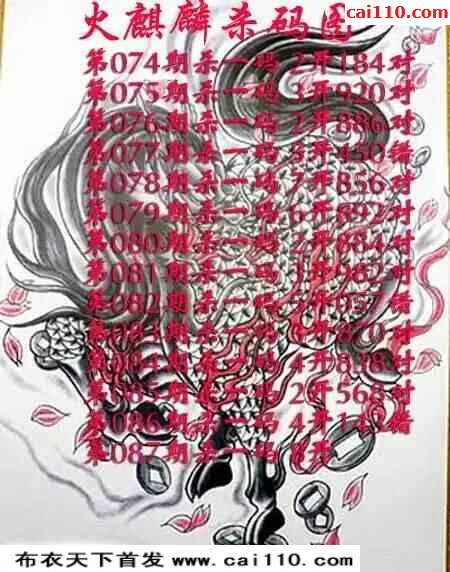 cai110.com
火麒麟杀码图
第074期杀一码 2开184对
第075期杀一码 3开920对
第076期杀一码 2开886对
第077期杀一码 5开450错
第078期杀一码 7开856对
第079期杀一码 6开892对
第080期杀一码 2开884对
第081期杀一码 1开982对
第082期杀一码 5开057错
期杀一码 开870对
第084期杀一码 4开838对
第085期杀一码 2开568对
第086期杀一码 错
第087期杀一码
布衣天下首发 www.cai110.com